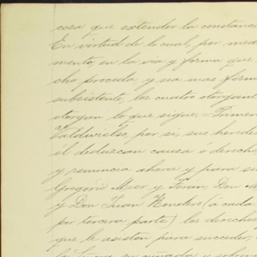 cosa que extender la constancia
En virtud de lo cual, por med
mento, en la via y forma que
cho proceda, y sea mas firme
subsistente, los cuatro otorgan
otorgan lo que sigue: Primer
Valdivielso, por si, sus hered
él deduzcan causa ó derecho
y renuncia ahora y para si
Gregorio Mier y Terán, Don M
y Don Juan (á cada
por tercera parte) los derecho
que le asistan, para suceder,